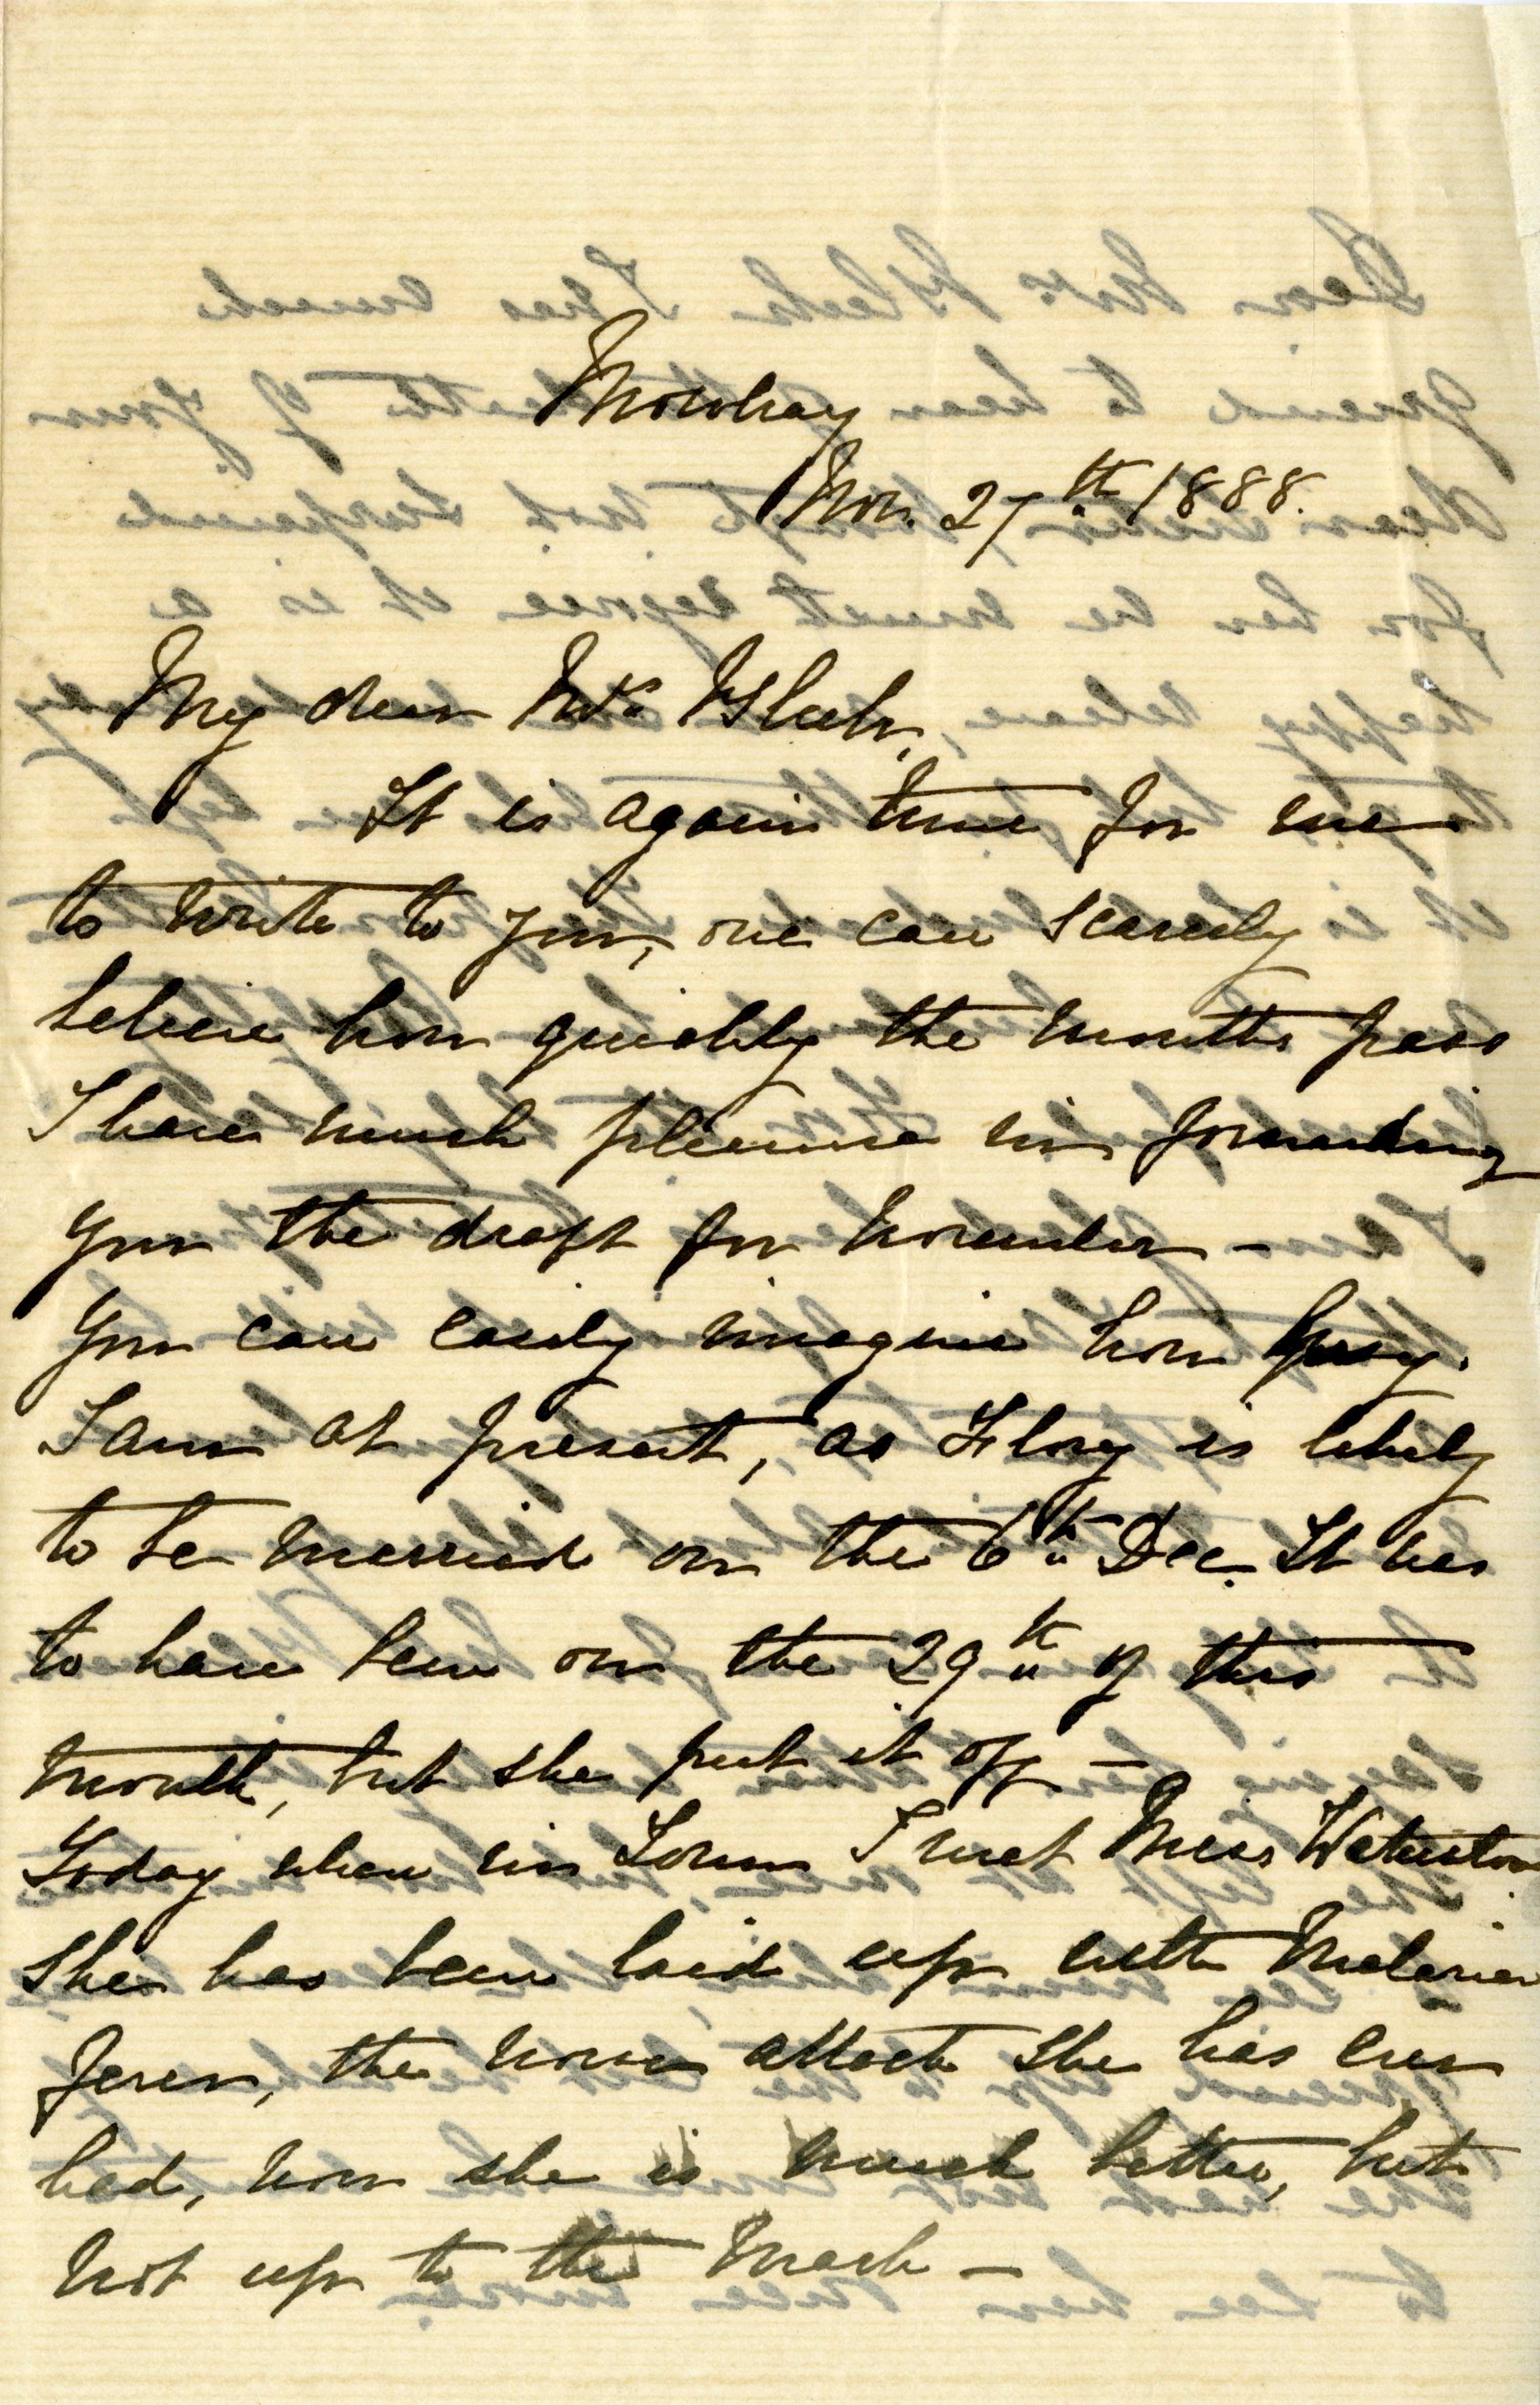 Mowbray
Nov. 27th 1888.
My dear Mrs Bleek,
It is again time for me
to write to you, one can scarcely
believe how quickly the months pass
I have much pleasure in forwarding
you the draft for November –
You can easily imagine how busy
I am at present, as Flory is likely
to be married on the 6th Dec. It was
to have been on the 29th of this
month, but she put it off –
Today when in Town I met Miss Waterston
She has been laid up with Malaria
fever, the worse attack she has ever
had, now she is much better, but
not up to the mark –